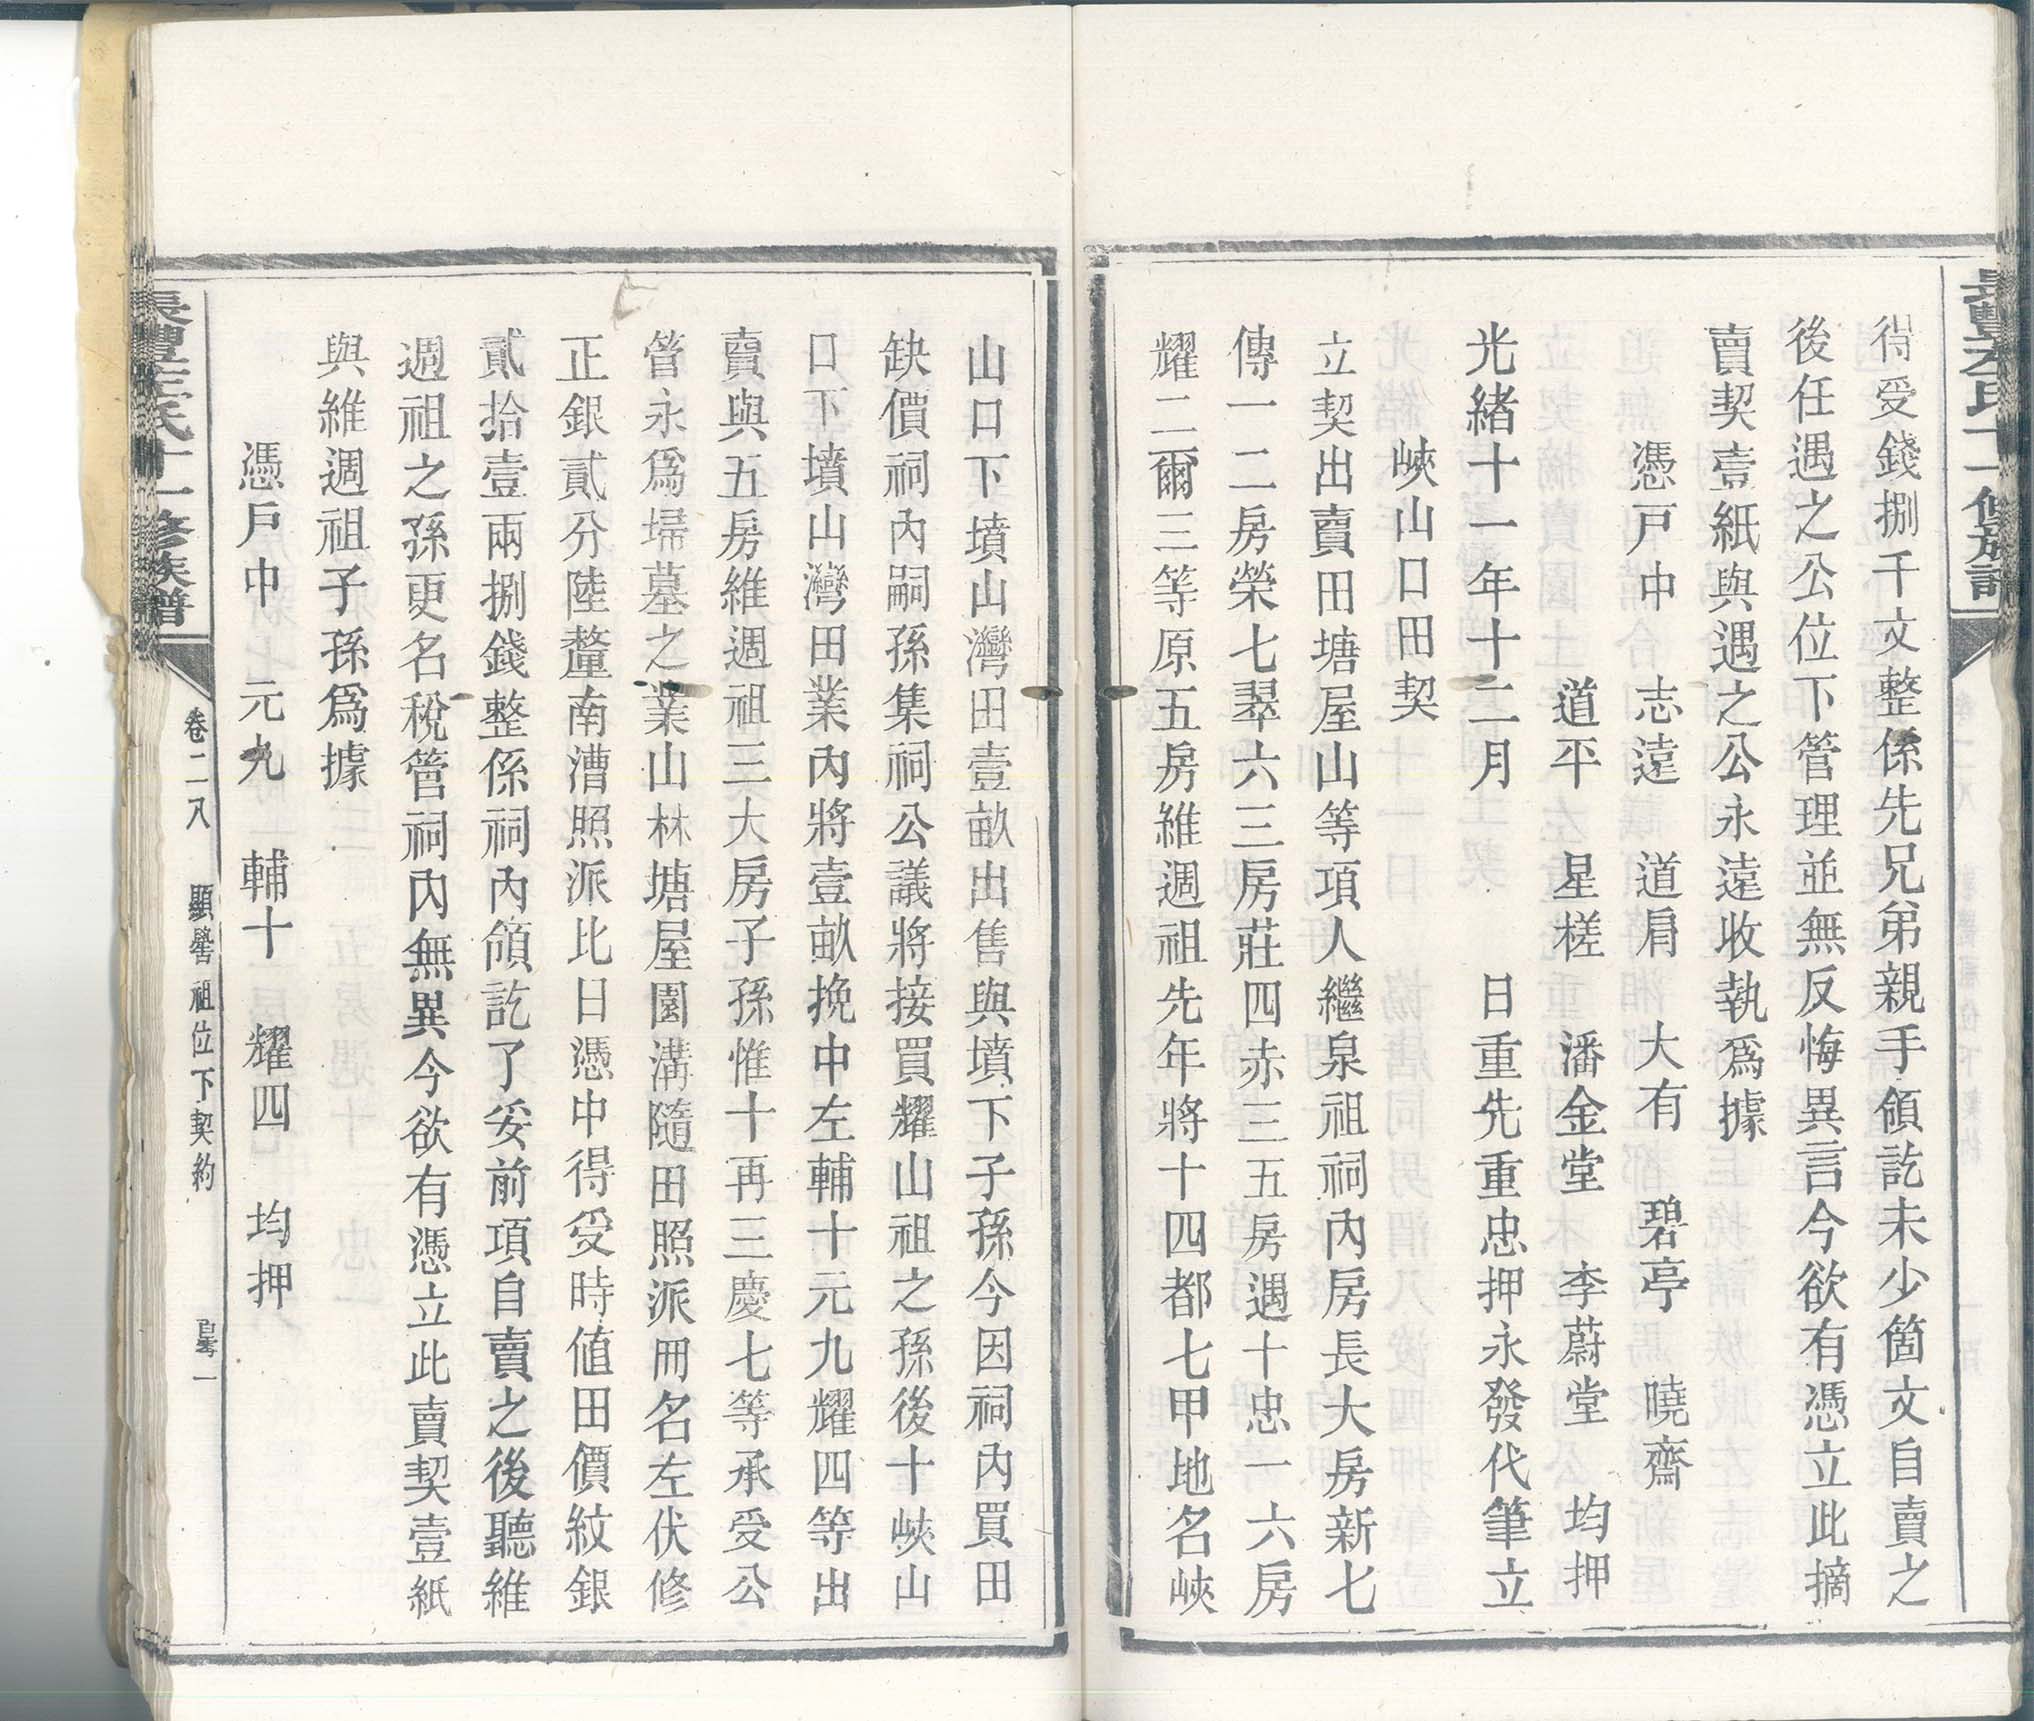 得受錢捌千文整係先兄弟親手領訖未少箇文自賣之
後任遇之公位下管理並無反悔異言今欲有憑立此摘
賣契壹紙與遇之公永遠收執爲據
憑戸中　志遠　道肩　大有　碧亭　曉齋
道平　星槎　潘金堂　李蔚堂　均押
光緒十一年十二月　　　日重先重忠押永發代筆立
峽山口田契
立契出賣田塘屋山等項人繼泉祖祠內房長大房新七
傳一二房榮七翠六三房莊四赤三五房遇十忠一六房
耀二爾三等原五房維週祖先年將十四都七甲地名峽
山口下墳山灣田壹畝出售與墳下子孫今因祠內買田
缺價祠內嗣孫集祠公議將接買耀山祖之孫後十峽山
口下墳山灣田業內將壹畝挽中左輔十元九耀四等出
賣與五房維週祖三大房子孫惟十再三慶七等承受公
管永爲埽墓之業山林塘屋園溝隨田照派冊名左伏修
正銀貳分陸釐南漕照派比日憑中得受時值田價紋銀
貳拾壹兩捌錢整係祠內領訖了妥前項自賣之後聽維
週祖之孫更名稅管祠內無異今欲有憑立此賣契壹紙
與維週祖子孫爲據
憑戶中　元九　輔十　耀四　均押
氏十一修族譜
卷二八　顯譽祖位下契約